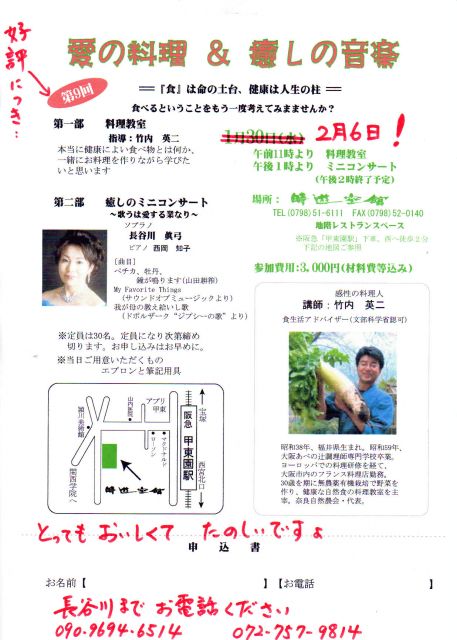 好評につき…
愛の料理 & 癒しの音楽
第9回
『食』は命の土台、健康は人生の柱
食べるということをもう一度考えてみませんか?
第一部 料理教室
指導:竹内 英二
本当に健康によい食べ物とは何か、
一緒にお料理を作りながら学びた
いと思います
1月30日(水)
2月6日!
午前11時より 料理教室
午後1時より ミニコンサート
(午後2時終了予定)
第二部 癒しのミニコンサート
~歌うは愛する業なり~
ソプラノ
長谷川 眞弓
ピアノ 西岡 知子
[曲目]
ペチカ、牡丹、
鐘が鳴ります(山田耕筰)
My Favorite Things
(サウンドオブミュージックより)
我が母の教え給いし歌
(ドボルザーク“ジプシーの歌”より)
場所:
TEL(0798)51-6111 FAX(0798)52-0140
地階レストランスペース
※阪急「甲東園駅」下車、西へ徒歩2分
下記の地図ご参照
参加費用:3,000円(材料費等込み)
※定員は30名。定員になり次第締め
切ります。お申し込みはお早めに。
※当日ご用意いただくもの
エプロンと筆記用具
感性の料理人
講師:竹内 英二
食生活アドバイザー(文部科学省認可)
昭和38年、福井県生まれ。昭和59年、
大阪あべの辻調理師専門学校卒業。
ヨーロッパでの料理研修を経て、
大阪市内のフランス料理店勤務。
30歳を期に無農薬有機栽培で野菜を
作り、健康な自然食の料理教室を主
宰。奈良自然農会・代表。
頴川美術館
山内医院
アプリ
甲東
ローソン
マクドナルド
阪急
甲東園駅
宝塚
西宮北口
関西学院へ
とっても おいしくて たのしいですよ
申込書
お名前【 】【お電話 】
長谷川まで お電話ください
090-9694-6514 072-757-9814